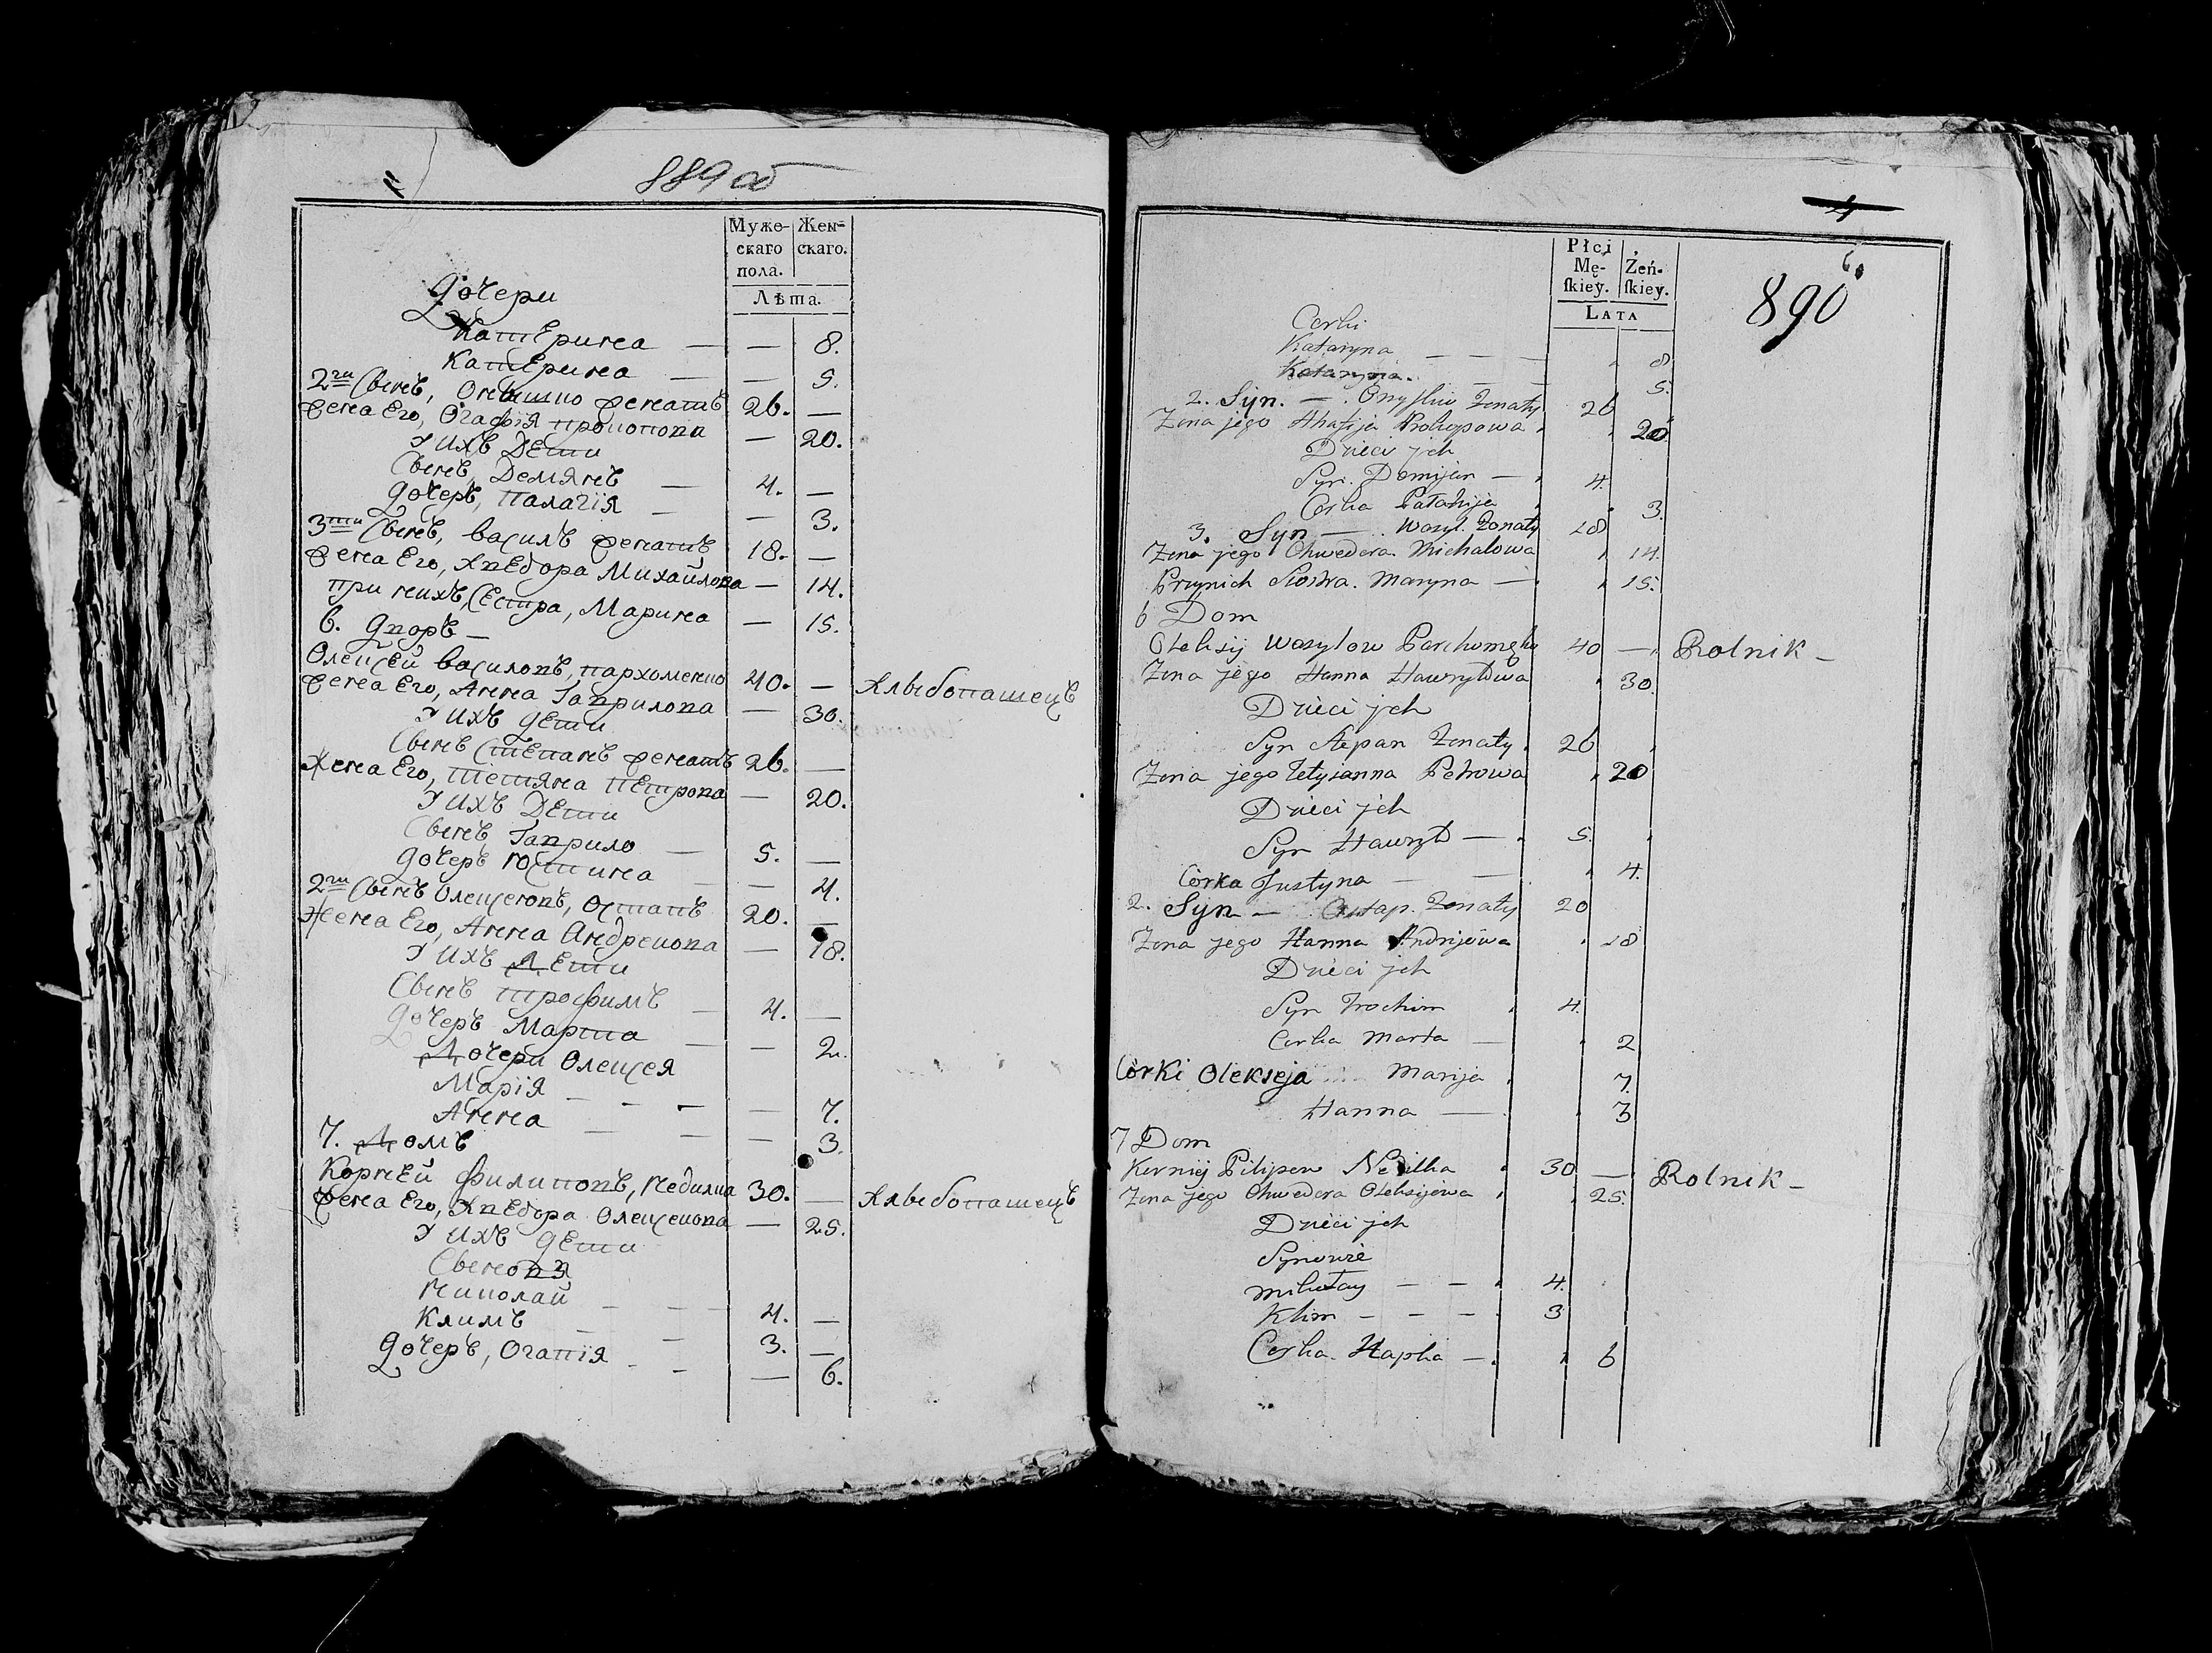 889 об
Муже-скаго пола. Жен-скаго.
Лѣта.
Дочери
Катерина — — 8.
Катерина — — 5.
2гй Сынъ, Онышко женатъ 26. —
жена Его, Огафія прокопова — 20.
У ихъ Дети
Сынъ, Демянъ — 4. —
Дочеръ, Палагія — — 3.
3тй Сынъ, василъ женатъ 18. —
жена Его, Хведора Михайлова — 14.
при нихъ, Сестра, Марина — 15.
6. Дворъ —
Олексей василовъ, пархоменко 40. — Хлыбопашецъ
жена Его, Анна Гаврилова — 30.
У ихъ дети
Сынъ Степанъ женатъ 26. —
Жена Его, Тетяна Петрова — 20.
У ихъ Дети
Сынъ Гаврило — 5. —
Дочеръ Юстина — — 4.
2гй Сынъ Олексеювъ, Остапъ 20. —
Жена Его, Анна Андреиова — 18.
У ихъ Дети
Сынъ трофимъ — 4. —
Дочеръ Марта — — 2.
Дочери Олексея
Марія — — — — 7.
Анна — — — 3.
7. Домъ
Корней филиповъ, Недилка 30. — Хлыбопашецъ
жена Его, Хведора Олексеиова — 25.
У ихъ дети
Сыновя
Николай — — — 4. —
Климъ — — 3. —
Дочеръ, Огапія — — — 6.
4
6.
890
Płci Mę-ſkiey. Żeń-ſkiey.
LATA
Corki
Kataryna — — — 8
Kataryna. — — 5.
2. Syn. — . Onyſko Zonaty 26
Zona jego Ahafija Prokopowa 20.
Dzieci jch
Syn. Demijan — 4.
Corka Pałahija 3.
3. Syn — . Wasyl. Zonaty 18
Zona jego Chwedora. Michałowa 14.
Przynich Siostra. Maryna — 15.
6 Dom
Oleksij Wasylow Parchomęko 40 — Rolnik —
Zona jego Hanna Hawryłowa 30.
Dzieci jch
Syn Stepan Zonaty. 26
Zona jego Tetyianna Petrowa 20
Dzieci jch
Syn Hawryło — 5.
Córka Justyna — — 4.
2. Syn — Ostap. Zonaty 20
Zona jego Hanna Andrijowa 18
Dzieci jch
Syn Trochim 4.
Corka Marta — 2
Córki Olekseja Marija 7.
Hanna — 3
7 Dom
Kornij Pilipow Nedilka 30 — Rolnik —
Zona jego Chwedora Oleksijowa 25.
Dzieci jch
Synowie
Mikołay — — 4.
Klim — — — 3
Corka. Hapka — 6